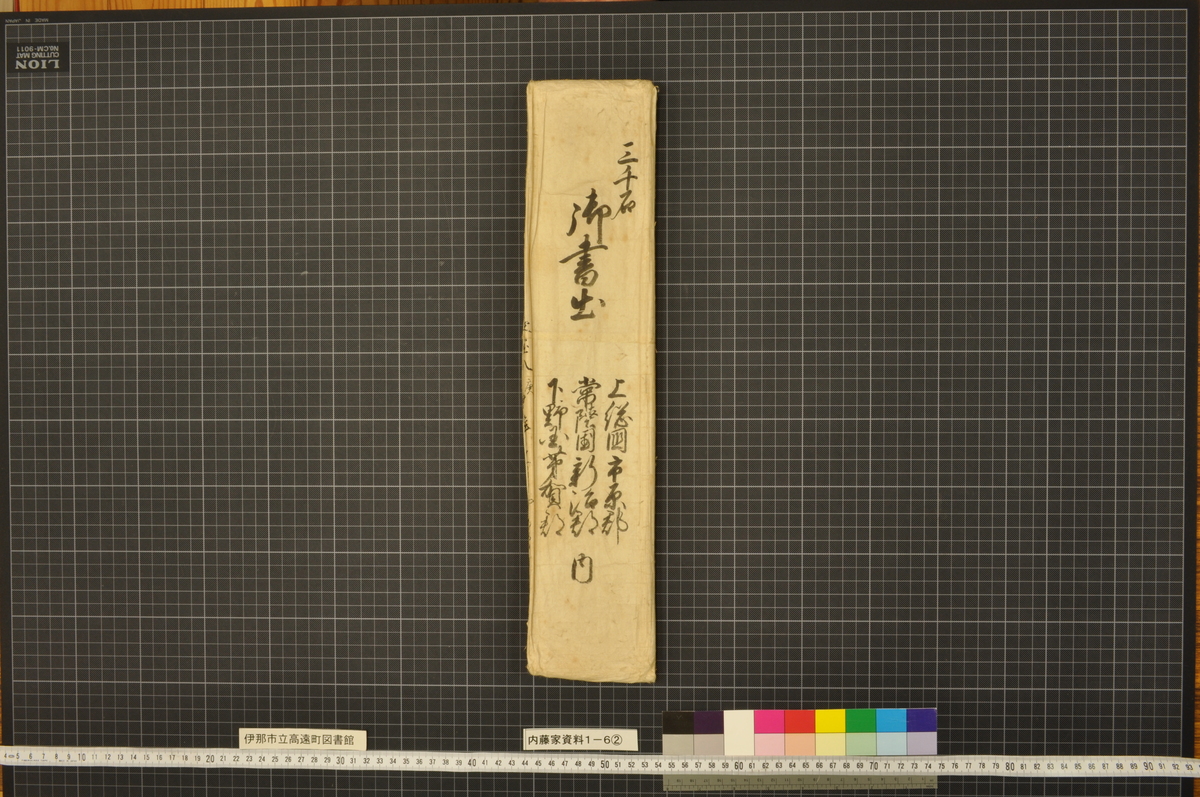 三千石
御書出
上総国市原郡
常陸国新治郡
下野国芳賀郡
内
伊那市立高遠町図書館
内藤家資料1-6②
LION
CUTTING MAT
No.CM-9011
MADE IN JAPAN